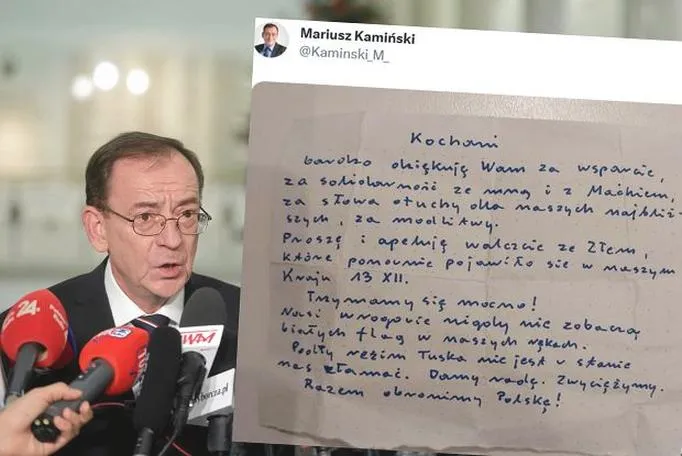 Mariusz Kamiński
@Kaminski_M_
Kochani
bardzo dziękuję Wam za wsparcie,
za solidarność ze mną i z Maćkiem,
za słowa otuchy dla naszych najbliż-
szych, za modlitwy.
Proszę i apeluję walczcie ze Złem,
które ponownie pojawiło się w naszym
Kraju 13 XII.
Trzymamy się mocno!
Nasi wrogowie nigdy nie zobaczą
białych flag w naszych rękach.
Podły reżim Tuska nie jest w stanie
nas złamać. Damy radę. Zwyciężymy.
Razem obronimy Polskę!
24
RWM